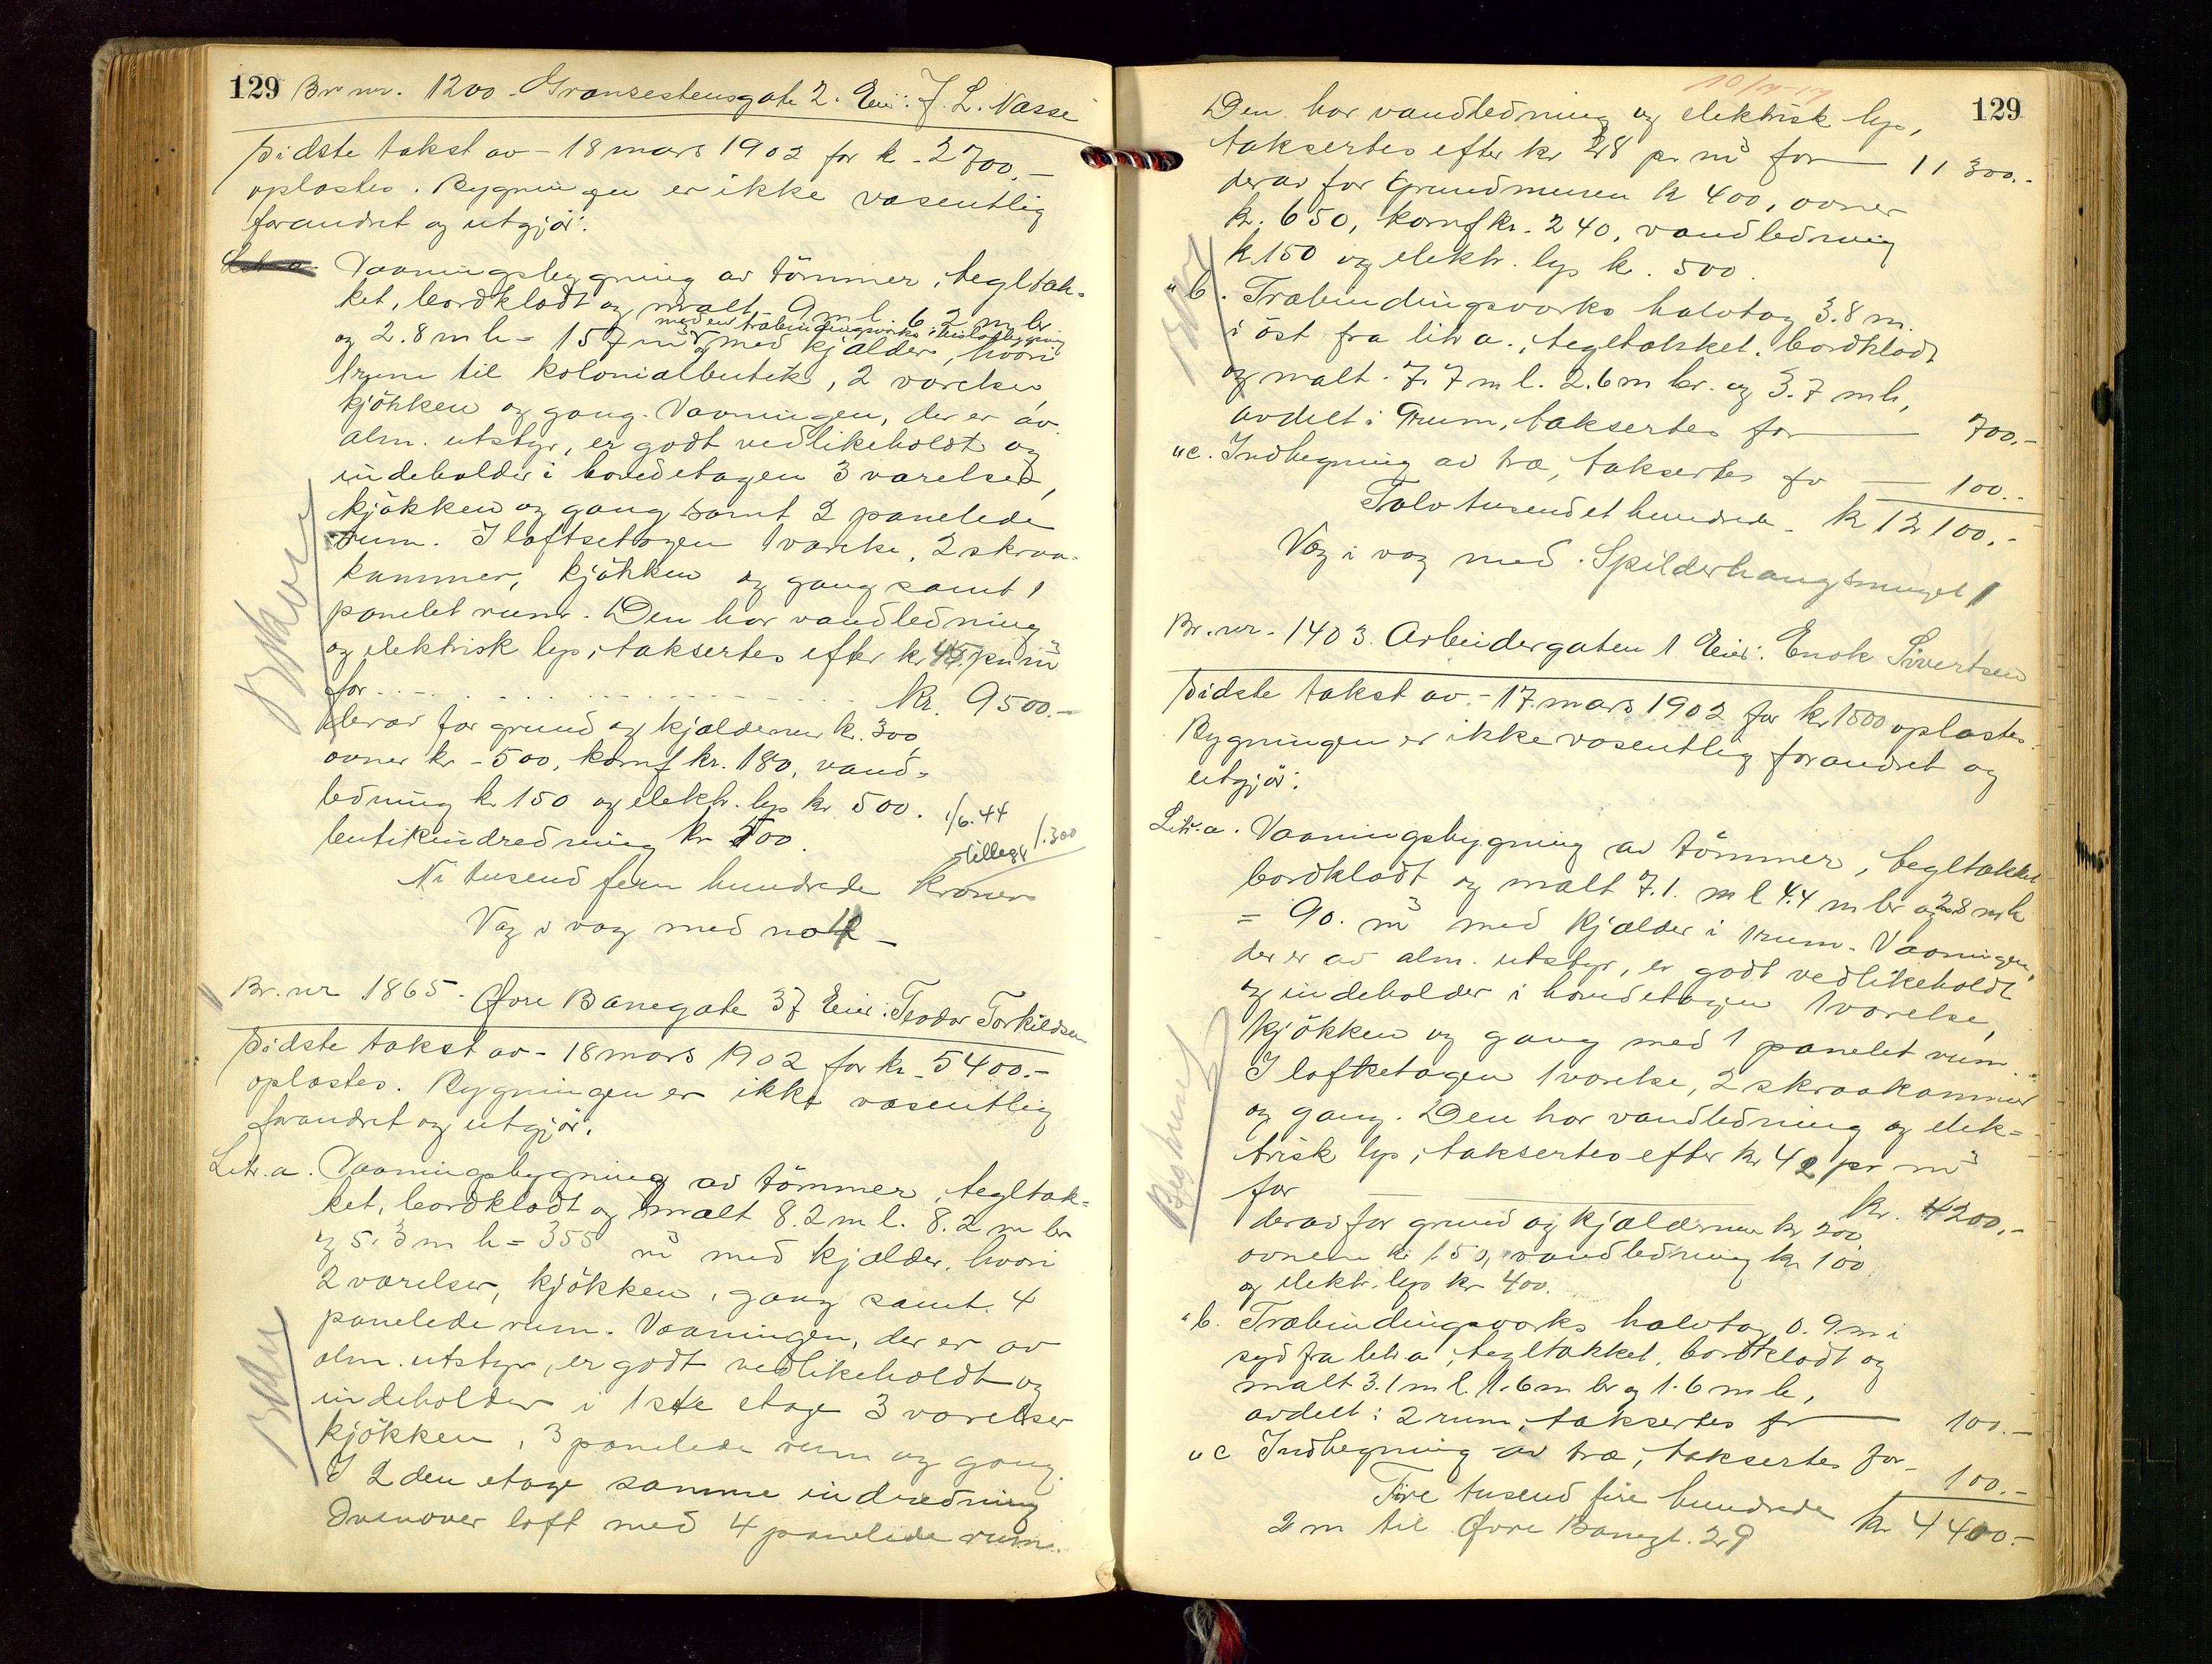 129 Br. nr. 1200. Gransestensgate 2. Eier: J. L. Næsse
Sidste takst av - 18 mars 1902 for kr - 2700.-
oplæstes. Bygningen er ikke væsentlig
forandret og utgjør:
Litr. a. Vaaningsbygning av tømmer, tegltæk-
ket, bordklædt og malt 9 m l. 6.2 m br
og 2.8 m h = 157 m³ og med kjælder, hvori
med en træbindingsverks
1 rum til kolonialbutik, 2 værelser,
kjøkken og gang. Vaaningen, der er av
alm. utstyr, er godt vedlikeholdt og
indeholder i hovedetagen 3 værelser,
kjøkken og gang samt 2 panelede
rum. I loftsetagen 1 værelse, 2 skraa-
kammer, kjøkken og gang samt 1
panelet rum. Den har vandledning
og elektrisk lys, taksertes efter kr 45 pr. m³
for - - - - kr. 9500.-
derav for grund og kjældermur kr. 300,
ovner kr - 500, komf kr. 180, vand-
ledning kr 150 og elektr. lys kr 500.
butikindredning kr 500.
1/6.44
tillegg 1.300
Ni tusend fem hundrede kroner
Væg i væg med no 4 -
Br. nr 1865. Øvre Banegate 37 Eier: Teodor Torkildsen
Sidste takst av - 18 mars 1902 for kr. 5400.-
oplæstes. Bygningen er ikke væsentlig
forandret og utgjør.
Litr. a. Vaaningsbygning av tømmer, tegltæk-
ket, bordklædt og malt 8.2 m l. 8.2 m br
og 5.3 m h = 355 m³ med kjælder, hvori
2 værelser, kjøkken, gang samt 4
panelede rum. Vaaningen, der er av
alm. utstyr, er godt vedlikeholdt og
indeholder i 1ste etage 3 værelser
kjøkken, 3 panelede rum og gang.
I 2den etage samme indredning
Ovenover loft med 4 panelede rum.
10/4-17
129
Den har vandledning og elektrisk lys,
taksertes efter kr 28 pr m³ for — 11 300.-
derav for Grundmuren kr 400, ovner
kr. 650, komf kr. 240, vandledning
kr 150 og elektr. lys kr. 500.
" b. Træbindingsverks halvtag 3.8 m.
i øst fra litr a., tegltækket, bordklædt
og malt. 7.7 m l. 2.6 m br. og 3.7 m h,
avdelt i rum, taksertes for — 700.-
" c. Indhegning av træ, taksertes for — 100.-
Tolv tusend et hundrede - kr 12 100.-
Væg i væg med Spilderhaugsmuget 1
Br. nr. 1403. Arbeidergaten 1 Eier: Enok Sivertsen
Sidste takst av - 17 mars 1902 for kr 1500 oplæstes.
Bygningen er ikke væsentlig forandret og
utgjør:
Litr. a. Vaaningsbygning av tømmer, tegltækket
bordklædt og malt 7.1. m l 4.4 m br og 2.8 m h
= 90. m³ med kjælder i 1 rum. Vaaningen,
der er av alm. utstyr, er godt vedlikeholdt
og indeholder i hovedetagen 1 værelse,
kjøkken og gang med 1 panelet rum.
I loftsetagen 1 værelse, 2 skraakammer
og gang. Den har vandledning og elek-
trisk lys, taksertes efter kr 42 pr m³
for — kr. 4200.-
derav for grund og kjældermur kr 200
ovnene kr 150, vandledning kr 100
og elektr. lys kr 400.
" b. Træbindingsverks halvtag 0.9 m i
syd fra litr a, tegltækket, bordklædt og
malt 3.1 m l. 1.6 m br og 1.6 m h,
avdelt i 2 rum, taksertes for — 100.-
" c Indhegning av træ, taksertes for - 100.-
Fire tusend fire hundrede kr 4400.-
2 m til Øvre Banegt. 29